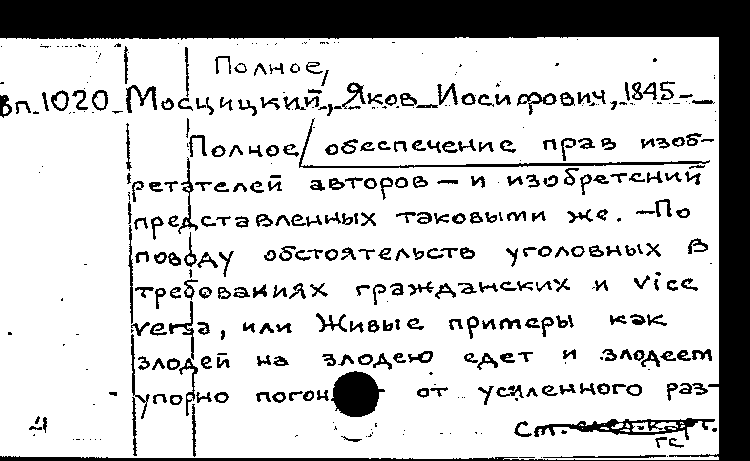 Полное,
Вп.1020 Мосцицкий, Яков Иосифович, 1845-
Полное/ обеспечение прав изоб-
ретателей авторов — и изобретений
представленных таковыми же. — По
поводу обстоятельств уголовных в
требованиях гражданских и vice
versa, или Живые примеры как
злодей на злодею едет и злодеем
упорно погон т от усиленного раз-
4
См. след. карт.